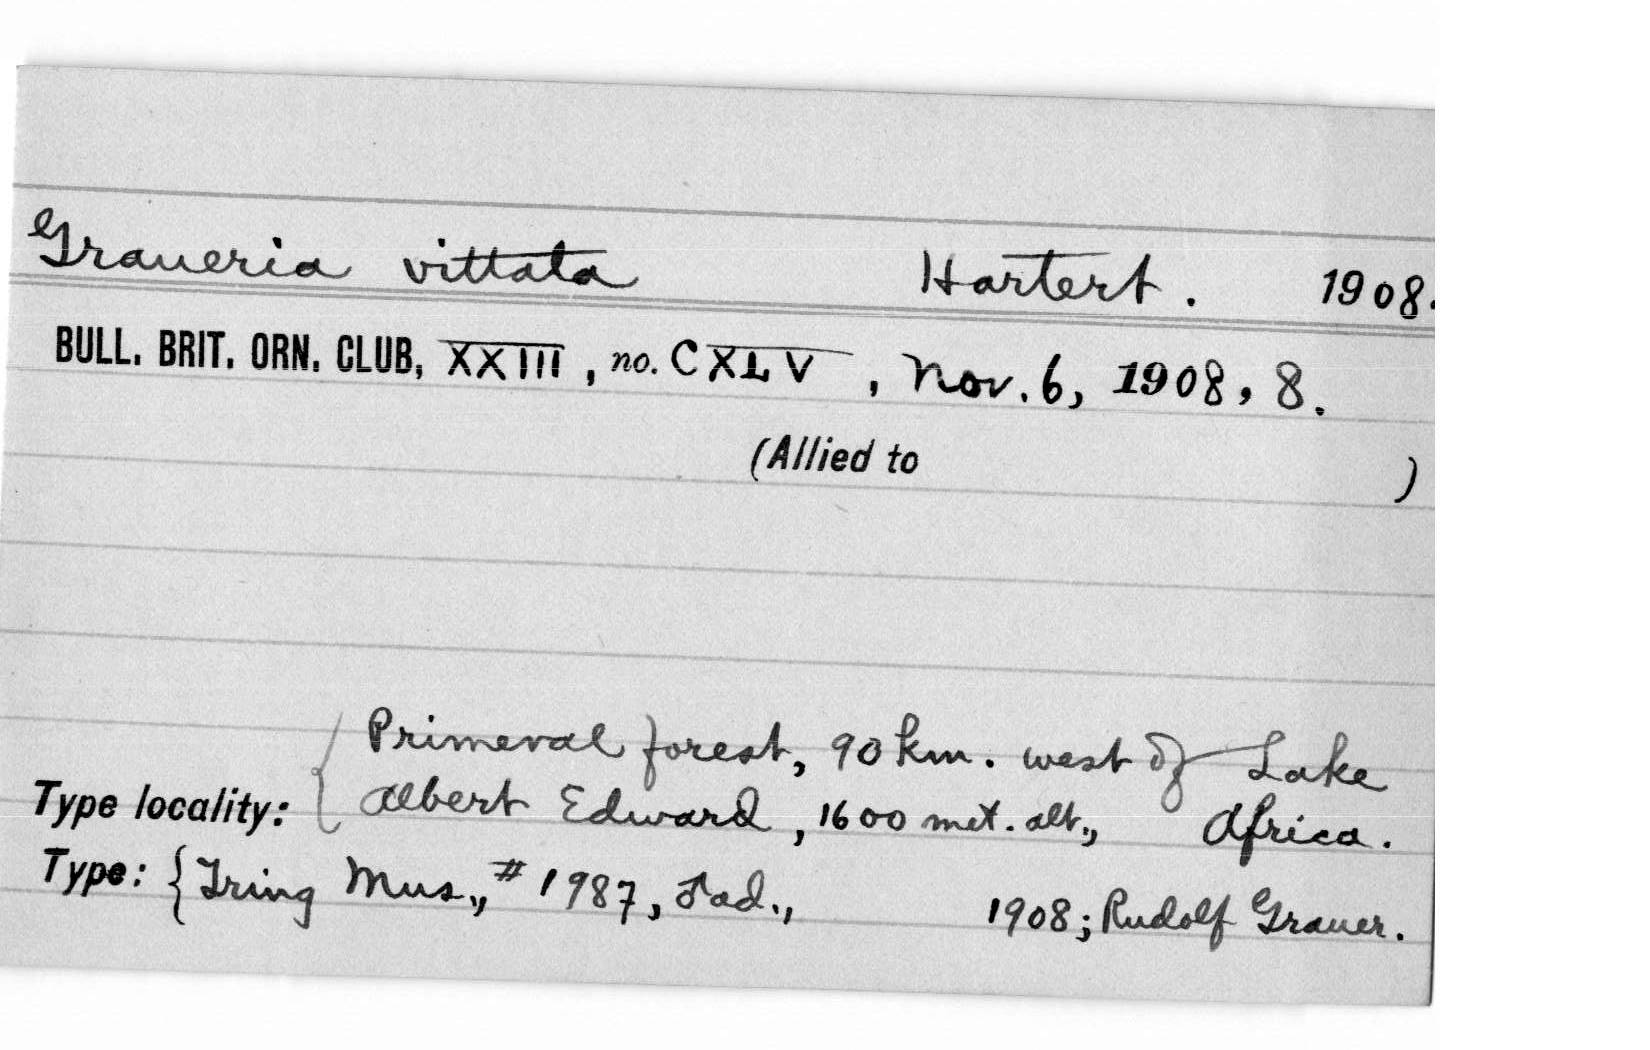 Graueria vittata Hartert. 1908.
BULL. BRIT. ORN. CLUB, XXIII, no. CXLV, Nov. 6, 1908, 8.
(Allied to )
Primeval forest, 90 km. west of Lake
Type locality: { Albert Edward, 1600 met. alt., Africa.
Type: { Tring Mus., # 1987, ♂ ad., 1908; Rudolf Grauer.